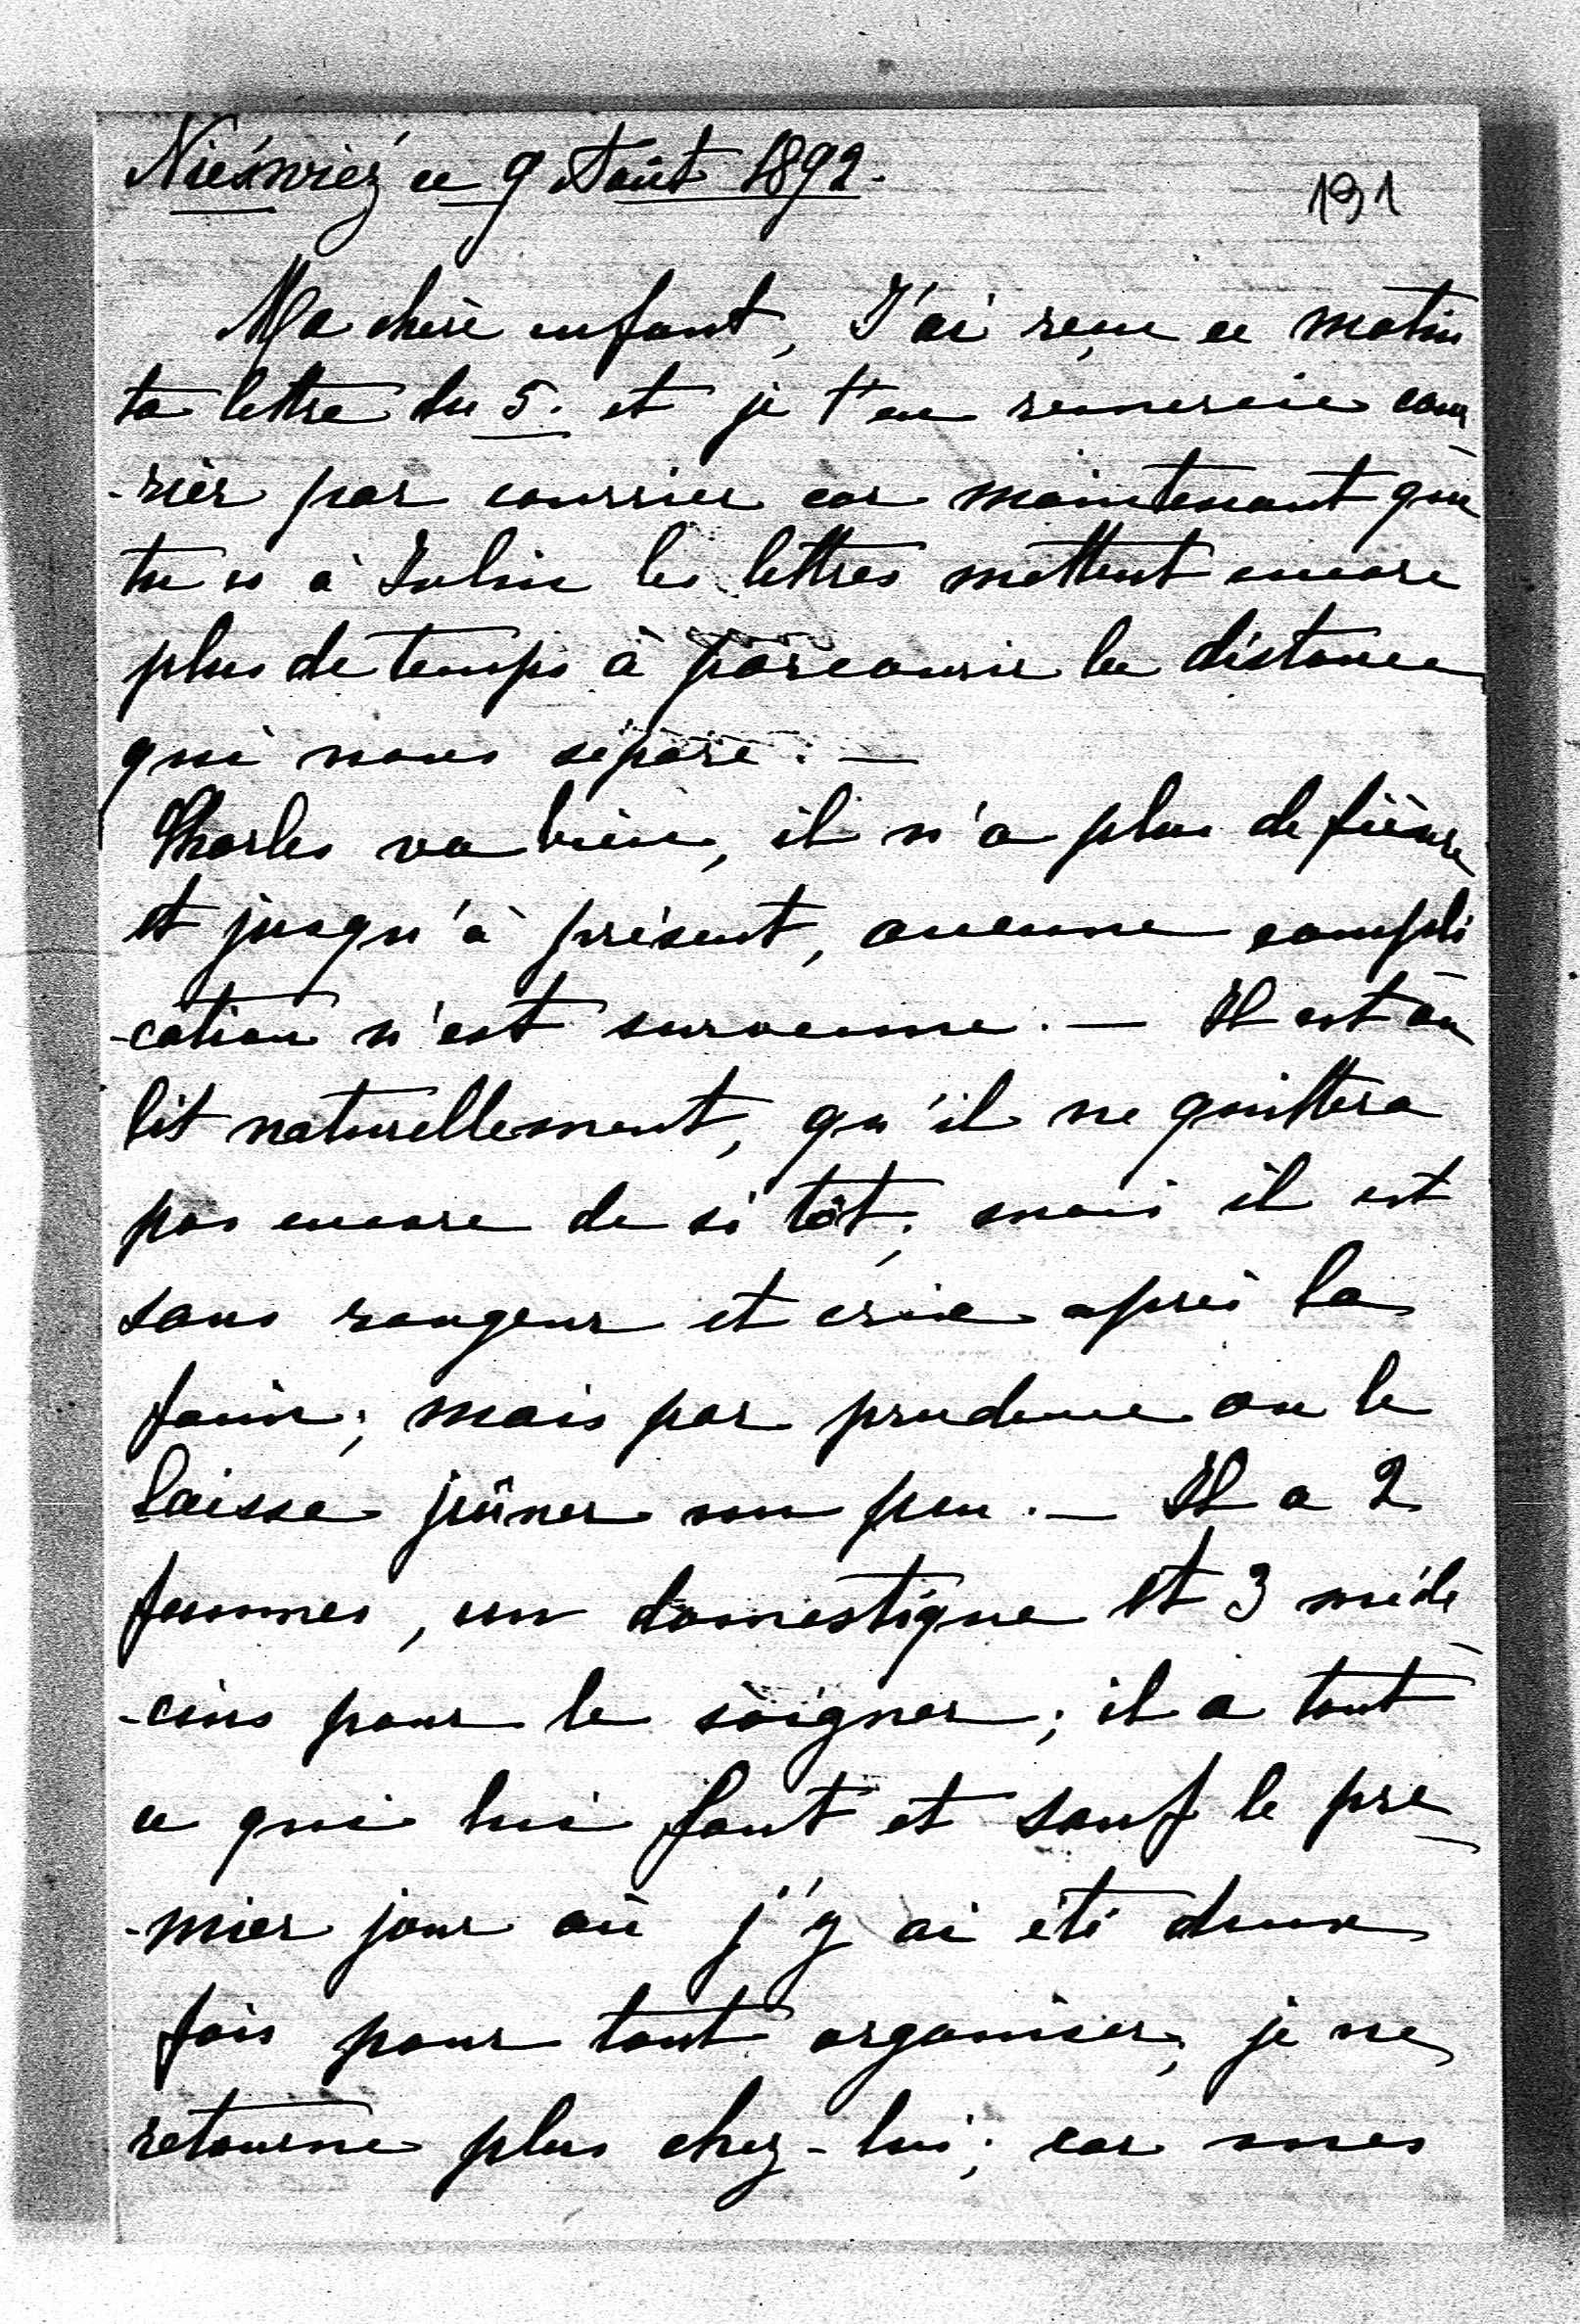 Nieśwież ce 9 Août 1892.
191
Ma chère enfant, J'ai reçu ce matin
ta lettre du 5. et je t'en remercie cour
-rier par courrier car maintenant que
tu es à Iulin les lettres mettent encore
plus de temps à parcourir la distance
qui nous sépare. —
Charles va bien, il n'a plus de fièvre
et jusqu'à présent, aucune compli
-cation n'est survenue. — Il est au
lit naturellement, qu'il ne quittera
pas encore de si tôt; mais il est
sans rougeur et crie après la
faim; mais par prudence on le
laisse jeûner un peu. — Il a 2
femmes, un domestique et 3 méde
-cins pour le soigner; il a tout
ce qui lui faut et sauf le pre
-mier jour où j'y ai été deux
fois pour tout organiser, je ne
retourne plus chez-lui; car mes